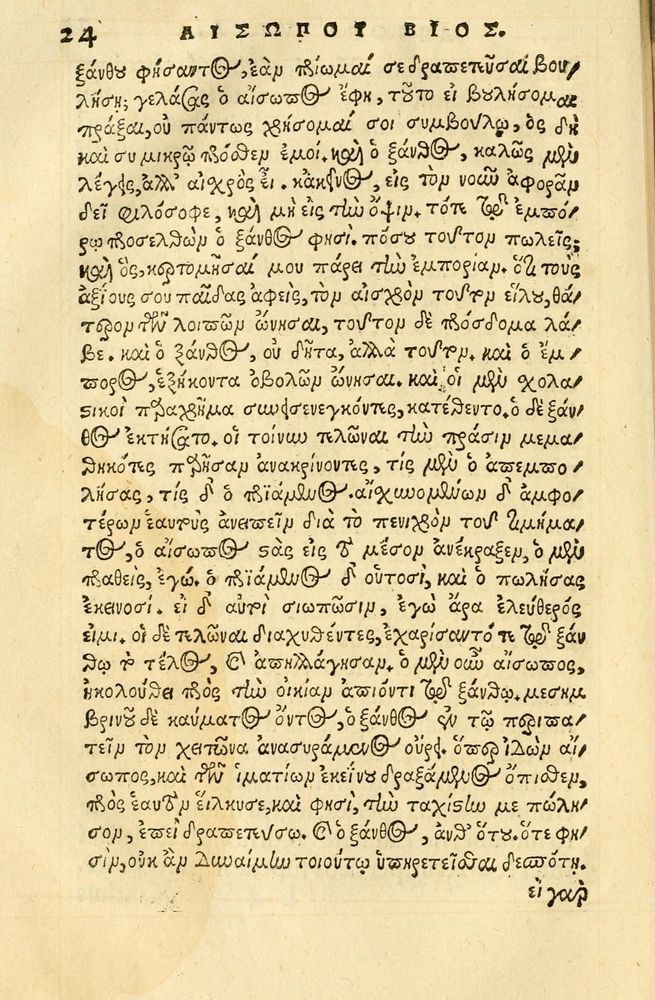 24 ΑΙΣΩΠΟΥ ΒΙΟΣ.
ξάνθου φήσαντος, ἐὰν πρίωμαί σε δραπετεῦσαι βου/
λήσῃ; γελάσας ὁ αἴσωπος ἔφη, τοῦτο εἰ βουλήσομαι
πράξαι, οὐ πάντως χρήσομαί σοι συμβούλῳ, ὃς δὴ
καὶ συ μικρῷ πρόσθεν ἐμοί. καὶ ὁ ξάνθος, καλῶς μὲν
λέγεις, ἀλλ' αἰσχρὸς εἶ. κἀκεῖνος, εἰς τὸν νοῦν ἀφορᾶν
δεῖ φιλόσοφε, καὶ μὴ εἰς τὴν ὄψιν. τότε τῷ ἐμπό/
ρῳ προσελθὼν ὁ ξάνθος φησὶ. πόσου τοῦτον πωλεῖς;
καὶ ὃς, κερτομῆσαί μου πάρει τὴν ἐμπορίαν. ὅτι τοὺς
ἀξίους σου παῖδας ἀφεὶς, τὸν αἰσχρὸν τοῦτον εἵλου, θά/
τερον τῶν λοιπῶν ὤνησαι, τοῦτον δὲ πρόσδομα λά/
βε. καὶ ὁ ξάνθος, οὐ δῆτα, ἀλλὰ τοῦτον. καὶ ὁ ἔμ/
πορος, ἑξήκοντα ὀβολῶν ὤνησαι. καὶ οἱ μὲν σχολα/
στικοὶ παραχρῆμα συνεισενεγκόντες, κατέθεντο. ὁ δὲ ξάν/
θος ἐκτήσατο. οἱ τοίνυν τελῶναι τὴν πράσιν μεμα/
θηκότες παρῆσαν ἀνακρίνοντες, τίς μὲν ὁ ἀπεμπο/
λήσας, τίς δ' ὁ πριάμενος. αἰσχυνομένων δ' ἀμφο/
τέρων ἑαυτοὺς ἀνειπεῖν διὰ τὸ πενιχρὸν τοῦ τιμήμα/
τος, ὁ αἴσωπος στὰς εἰς τὸ μέσον ἀνέκραξεν, ὁ μὲν
πραθεὶς, ἐγώ. ὁ πριάμενος δ' οὑτοσὶ, καὶ ὁ πωλήσας
ἐκεινοσί. εἰ δ' αὐτοὶ σιωπῶσιν, ἐγὼ ἄρα ἐλεύθερός
εἰμι. οἱ δὲ τελῶναι διαχυθέντες, ἐχαρίσαντό τε τῷ ξάν/
θῳ τὸ τέλος, καὶ ἀπηλλάγησαν. ὁ μὲν οὖν αἴσωπος,
ἠκολούθει πρὸς τὴν οἰκίαν ἀπιόντι τῷ ξάνθῳ. μεσημ/
βρινοῦ δὲ καύματος ὄντος, ὁ ξάνθος ἐν τῷ περιπα/
τεῖν τὸν χειτῶνα ἀνασυράμενος οὔρει. ὅπερ ἰδὼν αἴ/
σωπος, καὶ τῶν ἱματίων ἐκείνου δραξάμενος ὄπισθεν,
πρὸς ἑαυτὸν εἵλκυσε, καὶ φησὶ, τὴν ταχίστην με πώλη/
σον, ἐπεὶ δραπετεύσω. καὶ ὁ ξάνθος, ἀνθ' ὅτου. ὅτι φη/
σὶν, οὐκ ἂν δυναίμην τοιούτῳ ὑπηρετεῖσθαι δεσπότῃ.
εἰ γὰρ